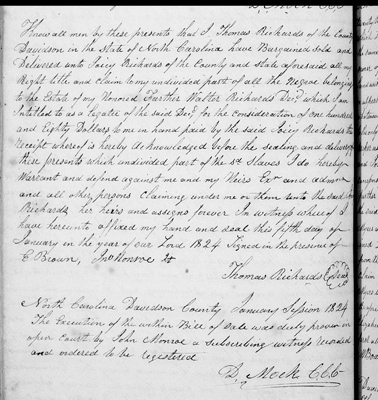 Know all men by these presents that I Thomas Richards of the County
Davidson in the State of North Carolina have Bargained Sold and
Delivered unto Joicy Richards of the County and State aforesaid all my
Right title and Claim to my undivided part of all the Negroe belonging
to the Estate of my Honored Farther Walter Richards Decd which I am
Intitled to as a legatee of the said Decd for the consideration of one hundred
and Eighty Dollars to me in hand paid by the said Joicy Richards the
Receipt whereof is hereby acknowledged before the sealing and delivery
these presents which undivided part of the sd Slaves I do hereby
Warrant and defend against me and my Heirs Exr and admr
and all other persons Claiming under me or them unto the said
Richards her heirs and assigns forever In witness whereof I
have hereunto affixed my hand and seal this fifth day of
January in the year of our Lord 1824 Signed in the presence of
E Brown, Jno Monroe
Thomas Richards Seal
North Carolina Davidson County January Session 1824
The Execution of the within Bill of Sale was duly proven in
open Court by John Monroe a subscribing witness recorded
and ordered to be registered
D. Mock CCC